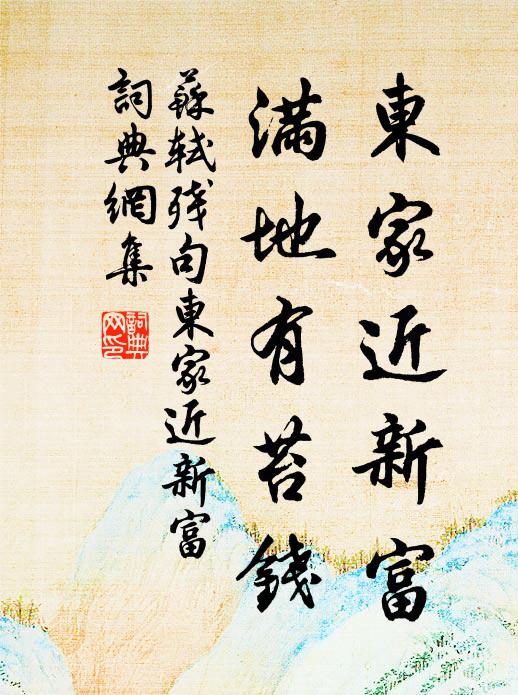 東家近新富
滿地有苔錢
蘇軾殘句東家近新富
詞典網集
詞典網印